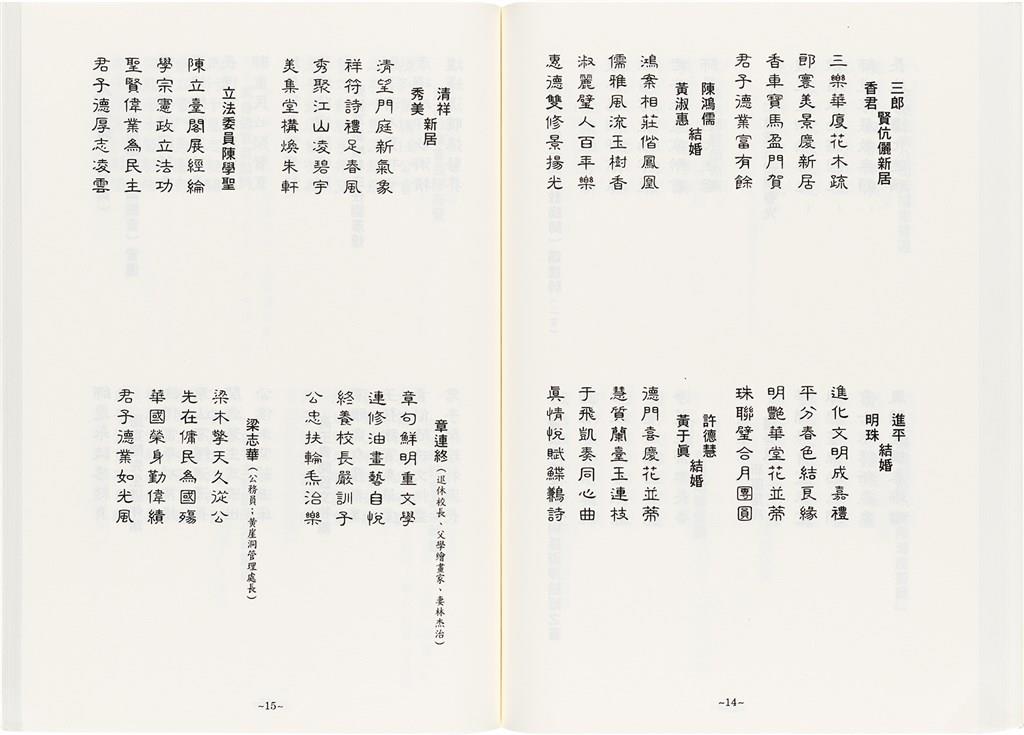 三郎
香君
賢伉儷新居
三樂華廈花木疏
郎寰美景慶新居
香車寶馬盈門賀
君子德業富有餘
陳鴻儒
黃淑惠
結婚
鴻案相莊偕鳳凰
儒雅風流玉樹香
淑麗璧人百年樂
惠德雙修景揚光
進平
明珠
結婚
進化文明成嘉禮
平分春色結良緣
明艷華堂花並蒂
珠聯璧合月團圓
許德慧
黃于眞
結婚
德門喜慶花並蒂
慧質蘭臺玉連枝
于飛凱奏同心曲
眞情悅賦鰈鶼詩
~14~
清祥
秀美
新居
清望門庭新氣象
祥符詩禮足春風
秀聚江山凌碧宇
美集堂構煥朱軒
立法委員陳學聖
陳立臺閣展經綸
學宗憲政立法功
聖賢偉業為民主
君子德厚志凌雲
章連終(退休校長、父學繪畫家、妻林杰治)
章句鮮明重文學
連修油畫藝自悅
終養校長嚴訓子
公忠扶輪炁治樂
梁志華(公務員；黃崖洞管理處長)
梁木擎天久從公
先在傭民為國殤
華國榮身勤偉績
君子德業如光風
~15~